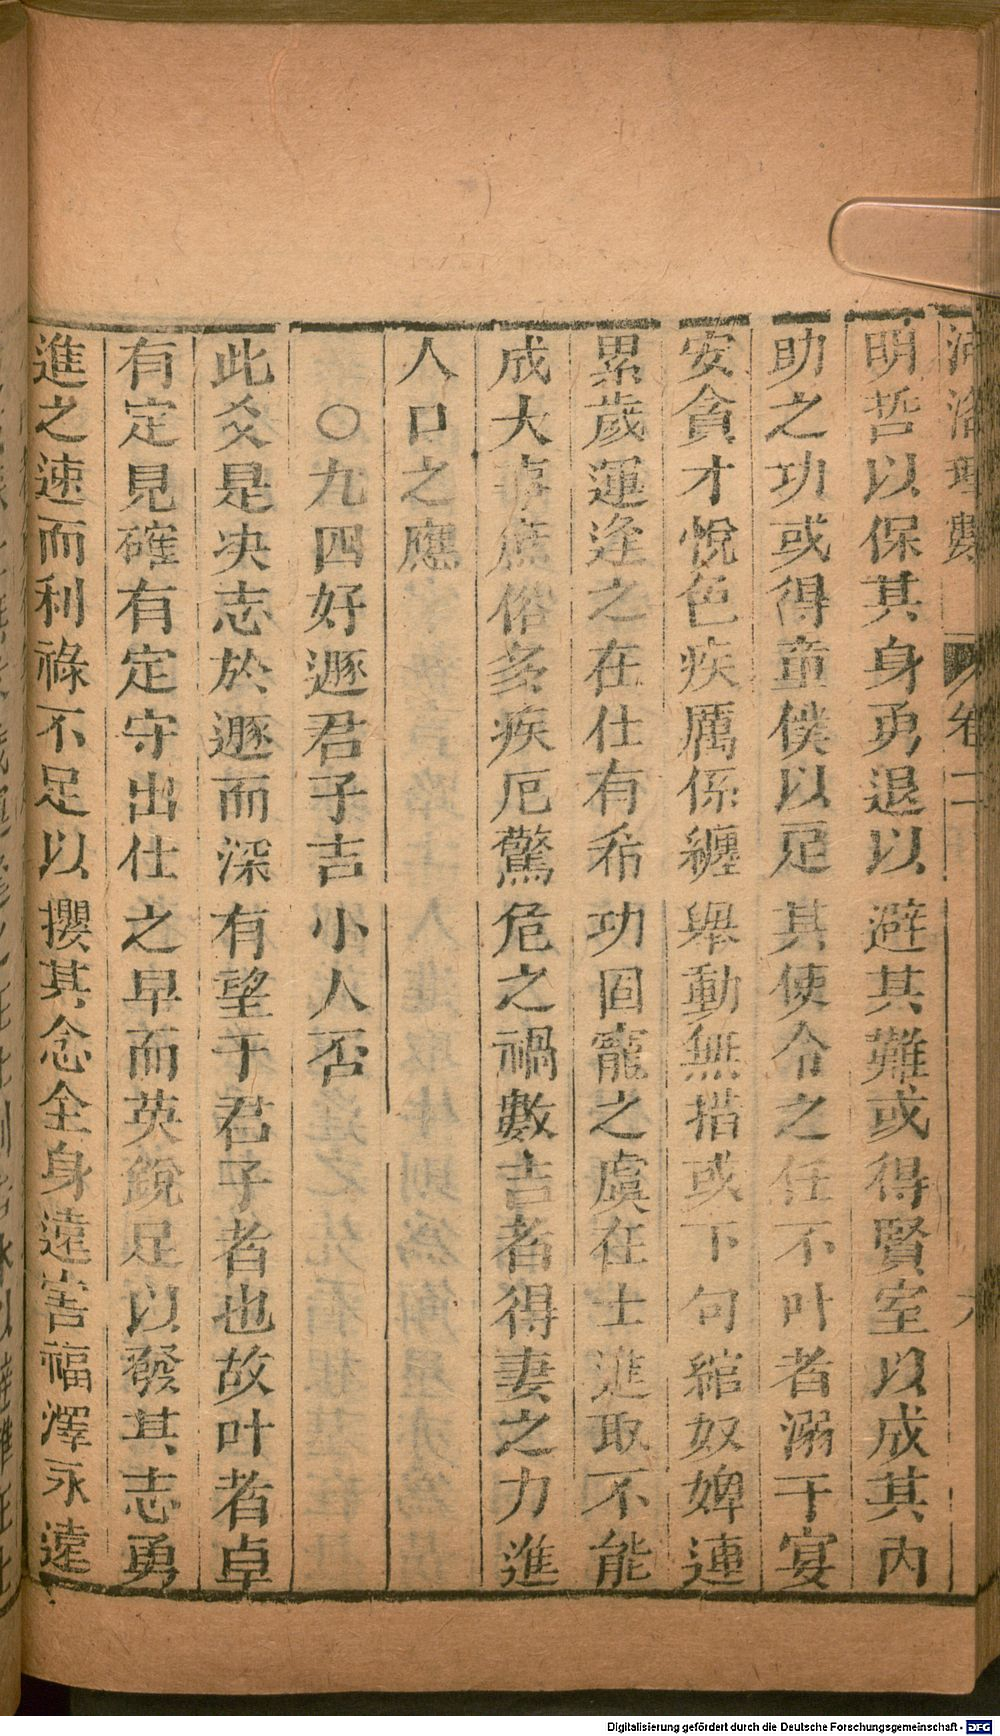 河洛理數 卷二 六
明哲以保其身勇退以避其難或得賢室以成其內
助之功或得童僕以足其使令之任不叶者溺于宴
安貪才悅色疾厲係纏舉動無措或下句綰奴婢連
累歲運逢之在仕有希功固寵之虞在士進取不能
成大事庶俗多疾厄驚危之禍數吉者得妻之力進
人口之應
○九四好遯君子吉小人否
此爻是決志於遯而深有望于君子者也故叶者卓
有定見確有定守出仕之早而英銳足以發其志勇
進之速而利祿不足以攖其念全身遠害福澤永遠
Digitalisierung gefördert durch die Deutsche Forschungsgemeinschaft - DFG